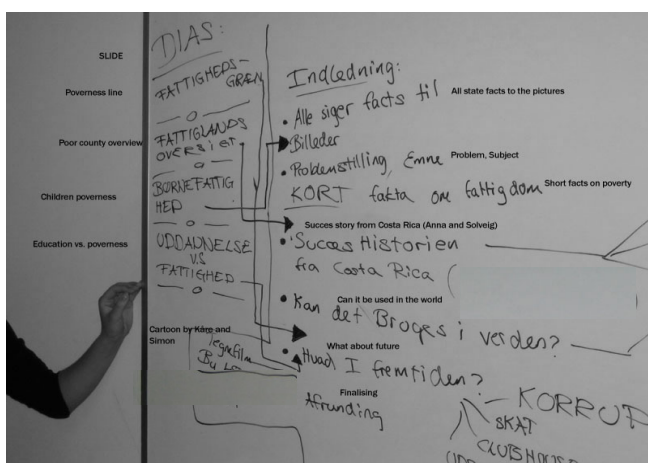 SLIDE
Poverness line
Poor county overview
Children poverness
Education vs. poverness
Cartoon by Kåre and
Simon
DIAS:
FATTIGHEDS-
GRÆN
FATTIGLANDS
OVERSIGT
BØRNEFATTIG
HED
UDDADNELSE
VS
FATTIGHED
Tegnefilm
Indledning:
• Alle siger facts til
All state facts to the pictures
Billeder
• Problemstilling, Emne
Problem, Subject
KORT fakta om fattigdom
Short facts on poverty
Succes story from Costa Rica (Anna and Solveig)
• Succes Historien
fra Costa Rica (
Can it be used in the world
• Kan det Bruges i verden?
What about future
• Hvad I fremtiden?
Finalising
Afrunding
KORRUP
SKAT
CLUBHOUSE